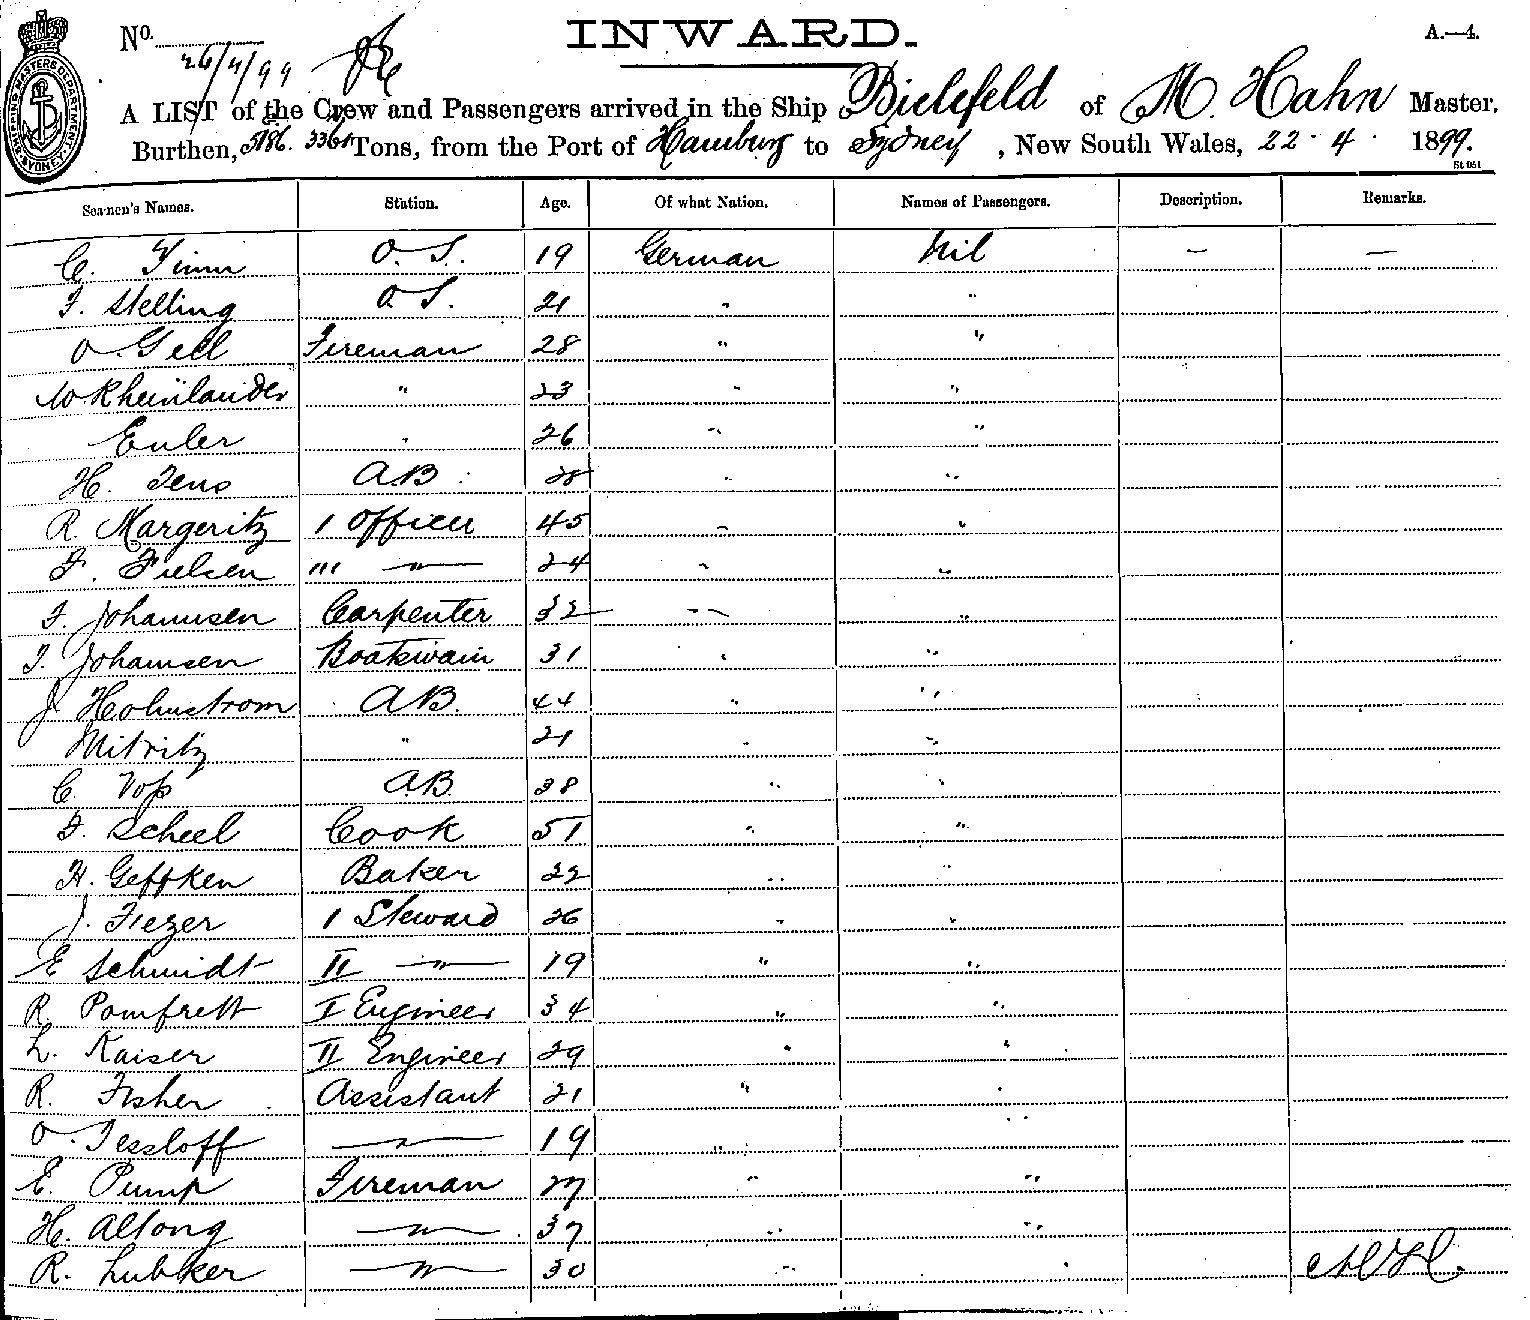 INWARD.
A.—4.
No.
26/4/99
A LIST of the Crew and Passengers arrived in the Ship Bielefeld of M. Hahn Master,
Burthen, 5186. 3361 Tons, from the Port of Hamburg to Sydney, New South Wales, 22·4· 1899.
Seamen's Names. Station. Age. Of what Nation. Names of Passengers. Description. Remarks.
C. Timm O.S. 19 German Nil — —
F. Stelling O.S. 21 " "
O. Gell Fireman 28 " "
W Rheinlander " 23 " "
Euler " 26 " "
H. Jens AB 28 " "
R. Margeritz 1 Officer 45 " "
F. Fielsen III —"— 24 " "
F. Johannsen Carpenter 32 " "
J. Johannsen Boatswain 31 " "
J Holmstrom AB. 44 " "
Mitritz " 21 " "
C. Voss AB 38 " "
F. Scheel Cook 51 " "
H. Geffken Baker 22 " "
J. Fiezer 1 Steward 26 " "
E Schmidt II —"— 19 " "
R. Pomfrett I Engineer 34 " "
L. Kaiser II Engineer 29 " "
R. Fisher Assistant 21 " "
O. Tessloff —"— 19 " "
E. Pump Fireman 27 " "
H. Altong —"— 37 " "
R. Lubker —"— 30 " "